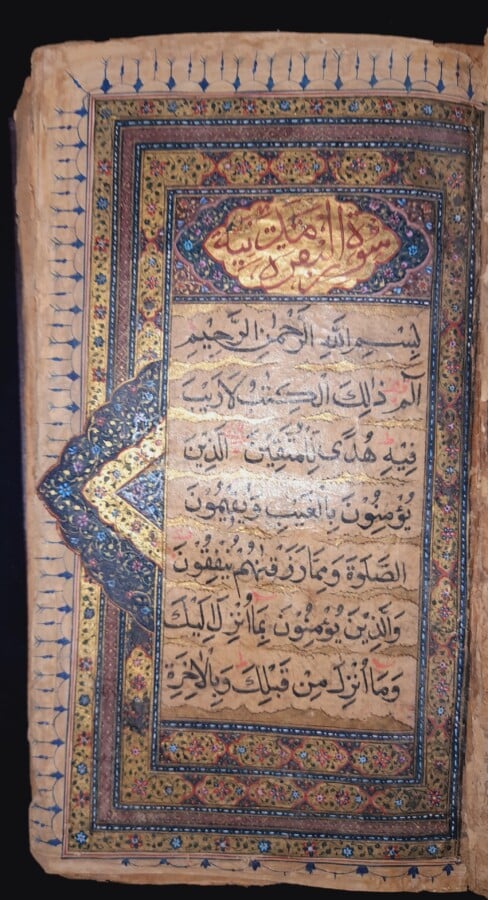 سورة البقرة مدنية
بِسْمِ اللَّهِ الرَّحْمٰنِ الرَّحِيمِ
الٓمٓ ذٰلِكَ الْكِتٰبُ لَارَيْبَ
فِيهِ هُدًى لِلْمُتَّقِينَ الَّذِينَ
يُؤْمِنُونَ بِالْغَيْبِ وَيُقِيمُونَ
الصَّلٰوةَ وَمِمَّا رَزَقْنٰهُمْ يُنْفِقُونَ
وَالَّذِينَ يُؤْمِنُونَ بِمَا أُنْزِلَ إِلَيْكَ
وَمَا أُنْزِلَ مِنْ قَبْلِكَ وَبِالْاٰخِرَةِ